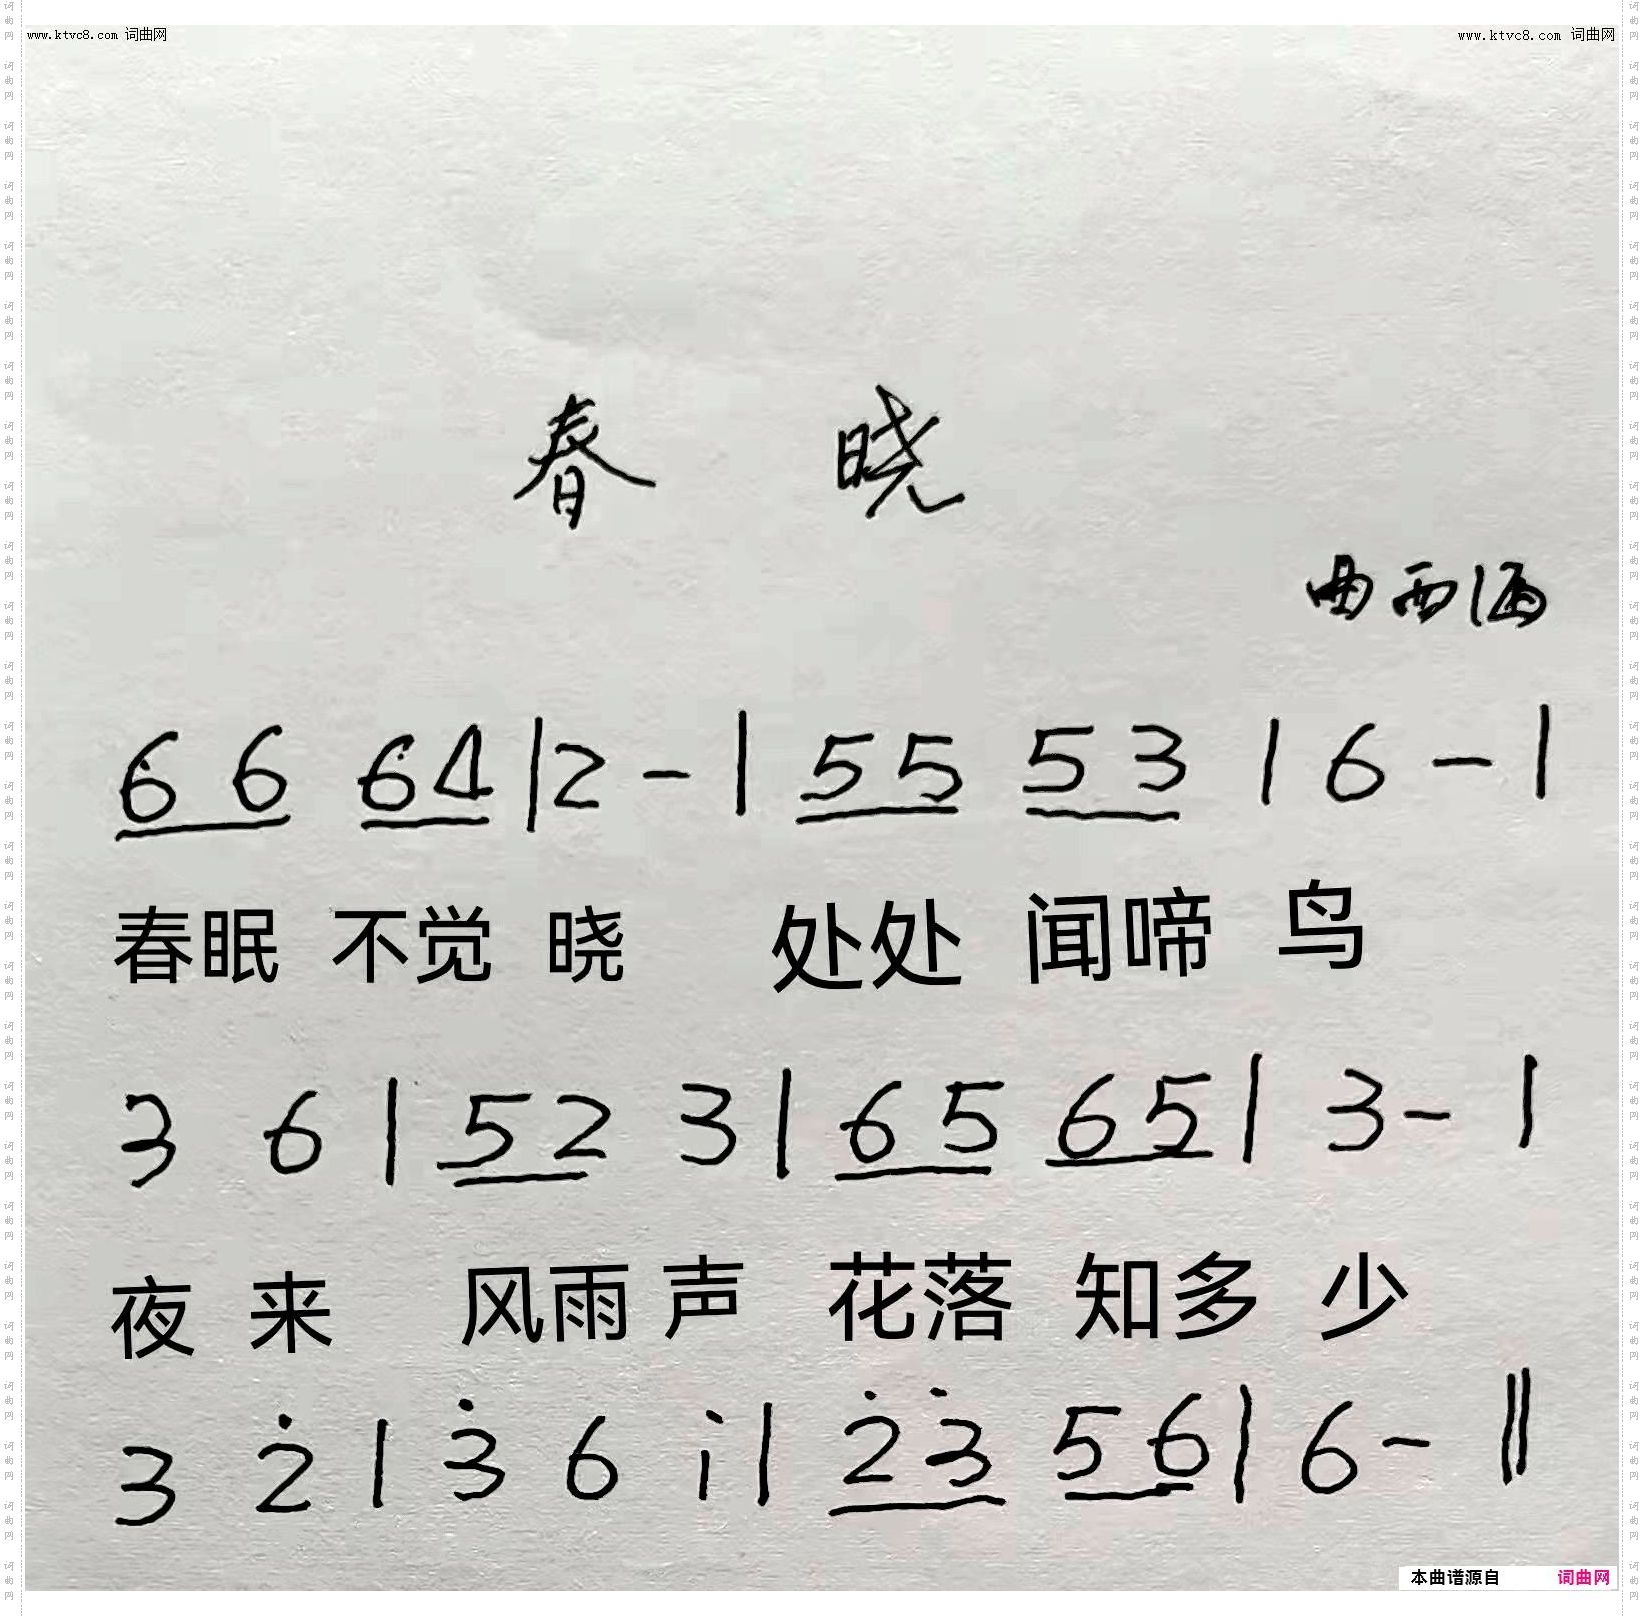 www.ktvc8.com 词曲网 www.ktvc8.com 词曲网
春 晓
曲西酒
6 6 6 4 | 2 - | 5 5 5 3 | 6 - |
春眠 不觉 晓 处处 闻啼 鸟
3 6 | 5 2 3 | 6 5 6 5 | 3 - |
夜 来 风雨 声 花落 知多 少
3 2̇ | 3̇ 6 i | 2̇ 3̇ 5 6 | 6 - ‖
本曲谱源自 词曲网